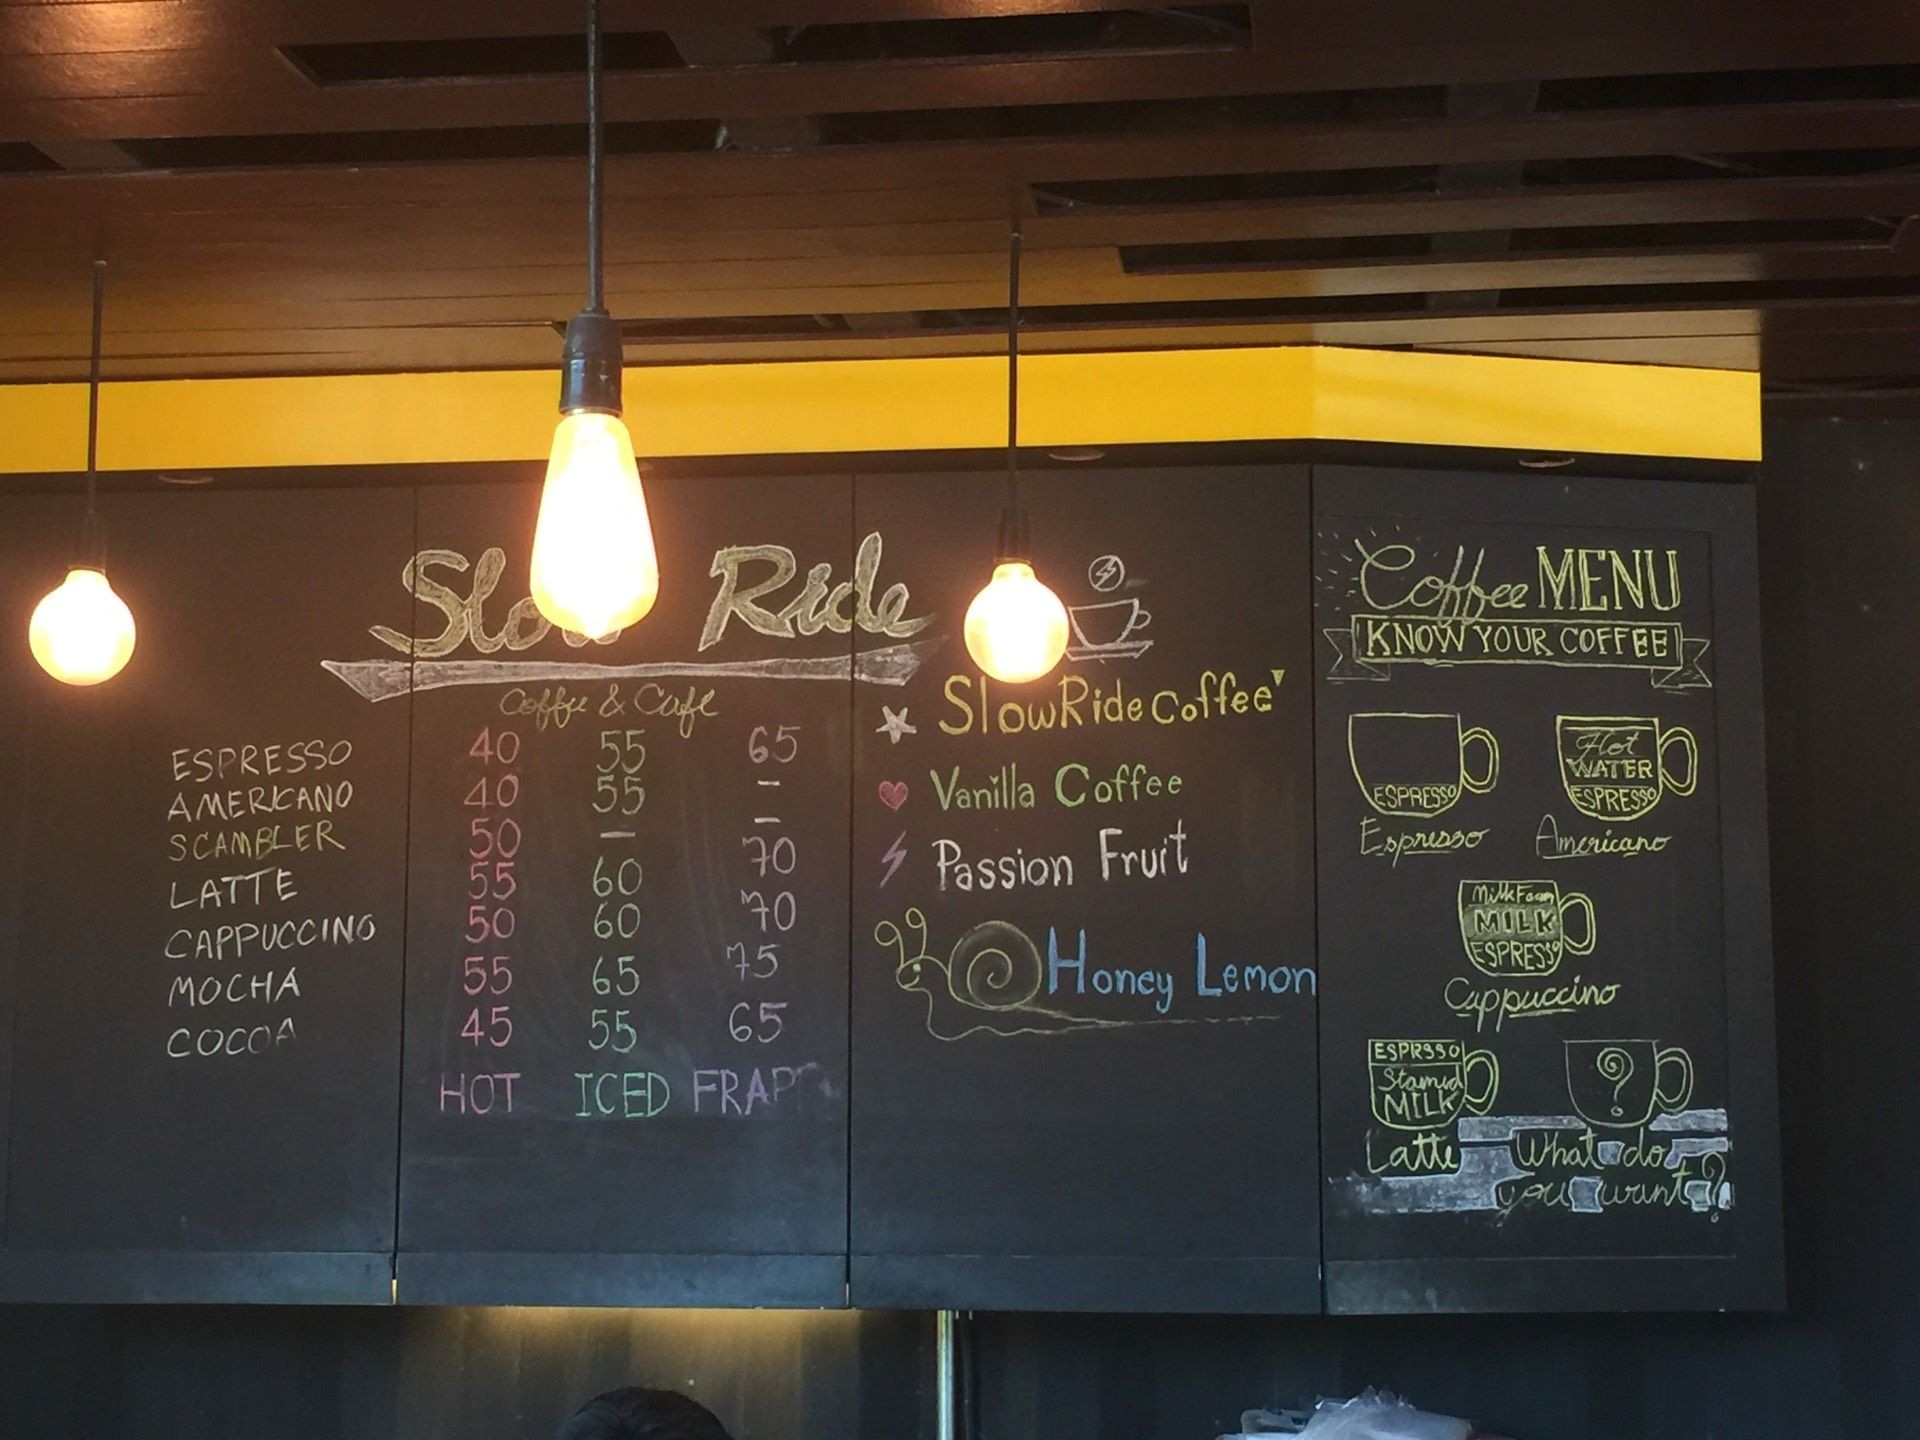 Slow Ride
Coffee & Cafe
ESPRESSO 40 55 65
AMERICANO 40 55 –
SCAMBLER 50 – –
LATTE 55 60 70
CAPPUCCINO 50 60 70
MOCHA 55 65 75
COCOA 45 55 65
HOT ICED FRAPP
SlowRide Coffee
Vanilla Coffee
Passion Fruit
Honey Lemon
Coffee MENU
KNOW YOUR COFFEE
ESPRESSO
Espresso
Hot
WATER
ESPRESSO
Americano
Milk Foam
MILK
ESPRESSO
Cappuccino
ESPRSSO
Stamed
MILK
Latte
?
What do
you want?